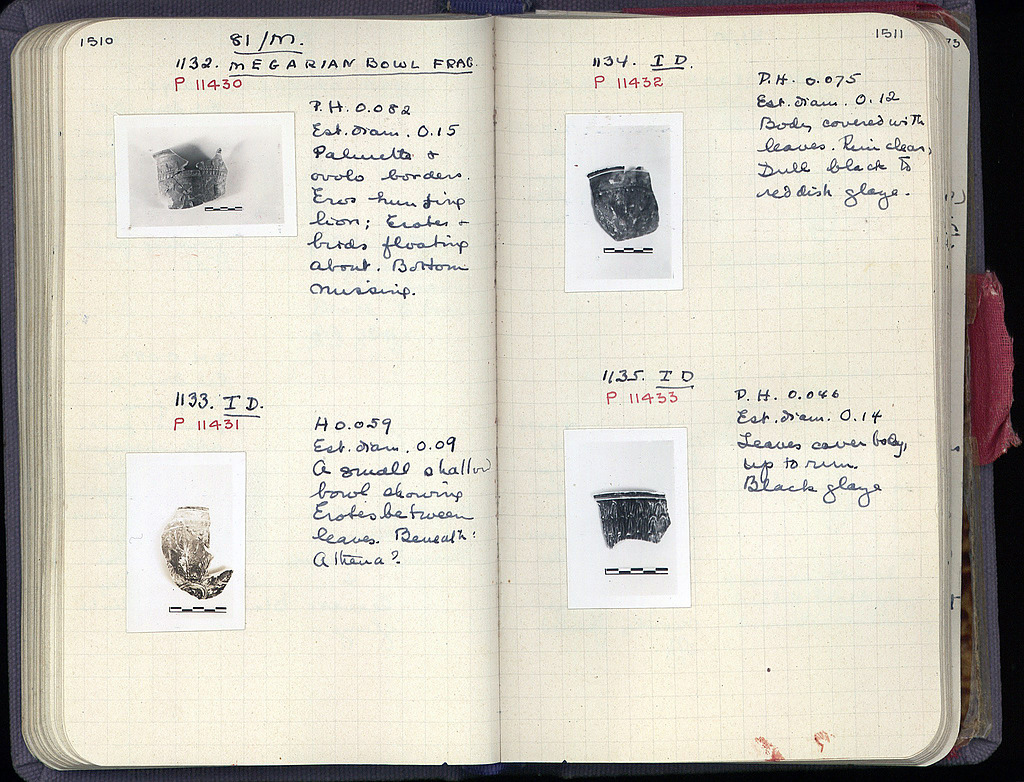 1510
81/M.
1132. MEGARIAN BOWL FRAG.
P 11430
P. H. 0.082
Est. diam. 0.15
Palmette +
ovolo borders.
Eros hunting
lion; Erotes +
birds floating
about. Bottom
missing.
1133. I D.
P 11431
H 0.059
Est. diam. 0.09
A small shallow
bowl showing
Erotes between
leaves. Beneath:
Athena?
1511
1134. I D.
P 11432
P. H. 0.075
Est. diam. 0.12
Body covered with
leaves. Rim clear,
Dull black to
reddish glaze.
1135. I D
P 11433
P. H. 0.046
Est. diam. 0.14
Leaves cover body,
up to rim.
Black glaze